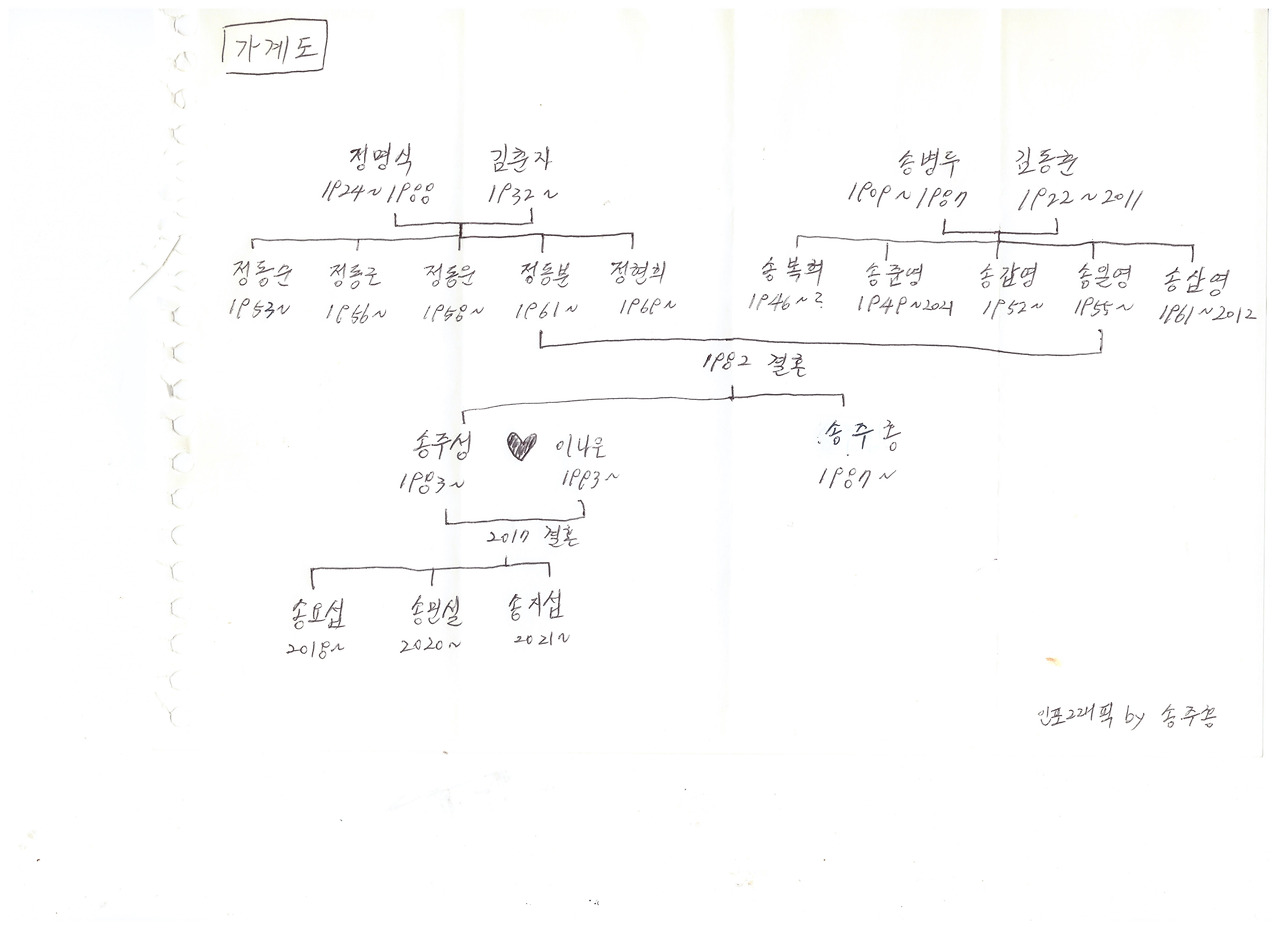 가계도
정명식 김춘자 송병두 김동훈
1924~1988 1932~ 1909~1987 1922~2011
정동순 정동근 정동운 정동분 정현희 송복희 송준영 송갑영 송일영 송삼영
1953~ 1956~ 1958~ 1961~ 1969~ 1946~? 1949~2021 1952~ 1955~ 1961~2012
1982 결혼
송주성 ♥ 이나은 송주홍
1983~ 1993~ 1987~
2017 결혼
송요섭 송민설 송지섭
2018~ 2020~ 2021~
인포그래픽 by 송주홍